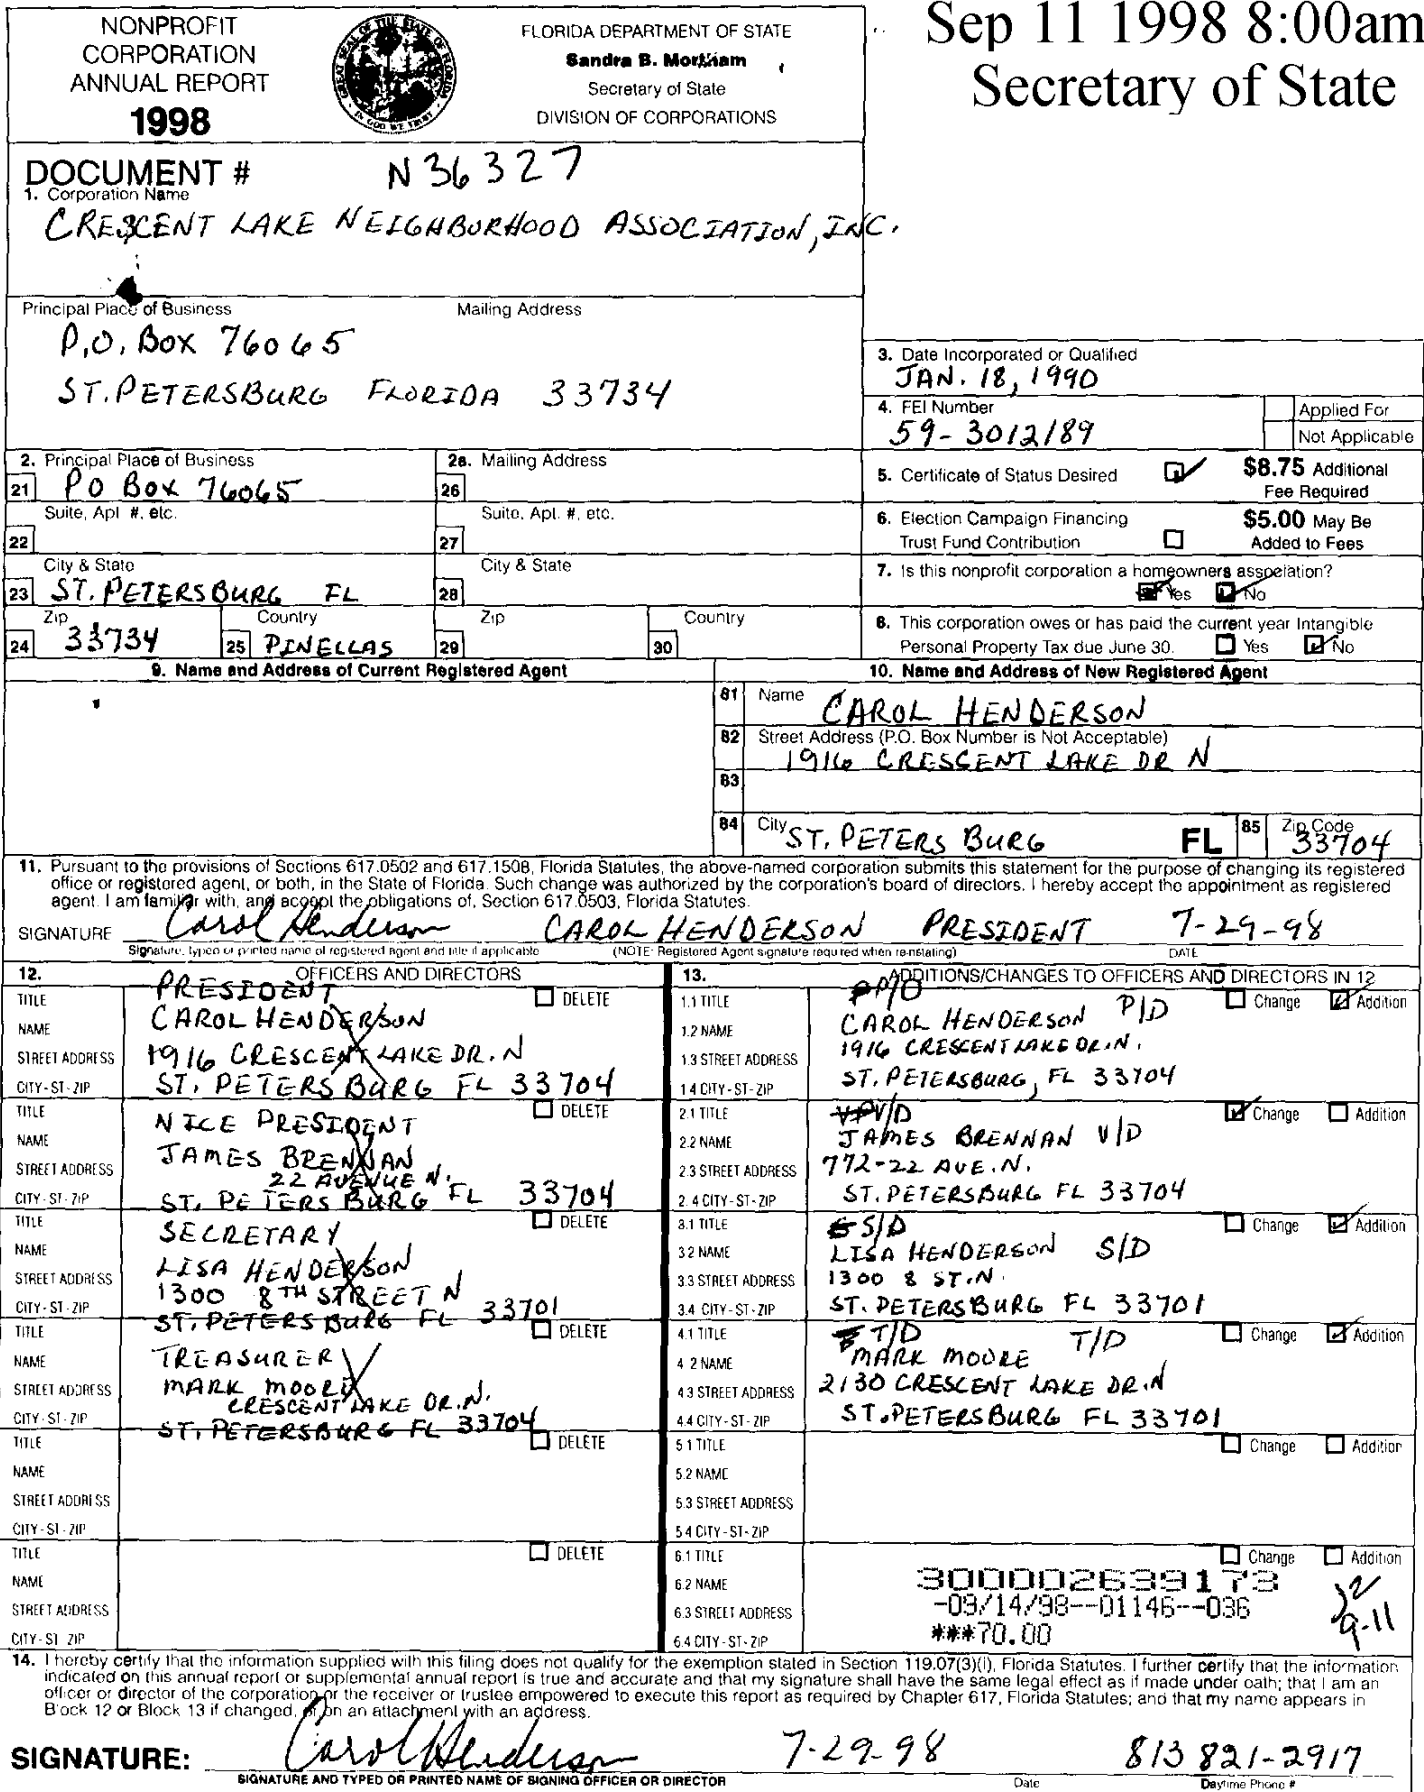 NONPROFIT
CORPORATION
ANNUAL REPORT
1998
GREAT SEAL OF THE STATE OF FLORIDA
IN GOD WE TRUST
FLORIDA DEPARTMENT OF STATE
Sandra B. Mortham
Secretary of State
DIVISION OF CORPORATIONS
Sep 11 1998 8:00am
Secretary of State
DOCUMENT # N36327
1. Corporation Name
CRESCENT LAKE NEIGHBURHOOD ASSOCIATION, INC.
Principal Place of Business Mailing Address
P.O. BOX 76065
ST. PETERSBURG FLORIDA 33734
3. Date Incorporated or Qualified
JAN. 18, 1990
4. FEI Number
59-3012189
Applied For
Not Applicable
2. Principal Place of Business 2a. Mailing Address
21 PO BOX 76065 26
Suite, Apt. #, etc. Suite, Apt. #, etc.
22 27
City & State City & State
23 ST. PETERSBURG FL 28
Zip Country Zip Country
24 33734 25 PINELLAS 29 30
5. Certificate of Status Desired $8.75 Additional
Fee Required
6. Election Campaign Financing $5.00 May Be
Trust Fund Contribution Added to Fees
7. Is this nonprofit corporation a homeowners association?
Yes No
8. This corporation owes or has paid the current year Intangible
Personal Property Tax due June 30. Yes No
9. Name and Address of Current Registered Agent
10. Name and Address of New Registered Agent
81 Name CAROL HENDERSON
82 Street Address (P.O. Box Number is Not Acceptable)
1916 CRESCENT LAKE DR N
83
84 City ST. PETERSBURG FL 85 Zip Code 33704
11. Pursuant to the provisions of Sections 617.0502 and 617.1508, Florida Statutes, the above-named corporation submits this statement for the purpose of changing its registered
office or registered agent, or both, in the State of Florida. Such change was authorized by the corporation's board of directors. I hereby accept the appointment as registered
agent. I am familiar with, and accept the obligations of, Section 617.0503, Florida Statutes.
SIGNATURE Carol Henderson CAROL HENDERSON PRESIDENT 7-29-98
Signature, typed or printed name of registered agent and title if applicable (NOTE: Registered Agent signature required when reinstating) DATE
12. OFFICERS AND DIRECTORS
TITLE PRESIDENT DELETE
NAME CAROL HENDERSON
STREET ADDRESS 1916 CRESCENT LAKE DR. N
CITY-ST-ZIP ST. PETERSBURG FL 33704
TITLE NICE PRESIDENT DELETE
NAME JAMES BRENNAN
STREET ADDRESS 22 AVENUE N.
CITY-ST-ZIP ST. PETERSBURG FL 33704
TITLE SECRETARY DELETE
NAME LISA HENDERSON
STREET ADDRESS 1300 8TH STREET N
CITY-ST-ZIP ST. PETERSBURG FL 33701
TITLE TREASURER DELETE
NAME MARK MOORE
STREET ADDRESS CRESCENT LAKE DR. N.
CITY-ST-ZIP ST. PETERSBURG FL 33704
TITLE DELETE
NAME
STREET ADDRESS
CITY-ST-ZIP
TITLE DELETE
NAME
STREET ADDRESS
CITY-ST-ZIP
13. ADDITIONS/CHANGES TO OFFICERS AND DIRECTORS IN 12
1.1 TITLE P/D Change Addition
1.2 NAME CAROL HENDERSON P/D
1.3 STREET ADDRESS 1916 CRESCENT LAKE DR. N.
1.4 CITY-ST-ZIP ST. PETERSBURG, FL 33704
2.1 TITLE VP V/D Change Addition
2.2 NAME JAMES BRENNAN V/D
2.3 STREET ADDRESS 772-22 AVE. N.
2.4 CITY-ST-ZIP ST. PETERSBURG FL 33704
3.1 TITLE S/D Change Addition
3.2 NAME LISA HENDERSON S/D
3.3 STREET ADDRESS 1300 8 ST. N.
3.4 CITY-ST-ZIP ST. PETERSBURG FL 33701
4.1 TITLE T/D Change Addition
4.2 NAME MARK MOORE T/D
4.3 STREET ADDRESS 2130 CRESCENT LAKE DR. N
4.4 CITY-ST-ZIP ST. PETERSBURG FL 33701
5.1 TITLE Change Addition
5.2 NAME
5.3 STREET ADDRESS
5.4 CITY-ST-ZIP
6.1 TITLE Change Addition
6.2 NAME 300002639173
6.3 STREET ADDRESS -09/14/98--01146--036
6.4 CITY-ST-ZIP ***70.00
9-11
14. I hereby certify that the information supplied with this filing does not qualify for the exemption stated in Section 119.07(3)(i), Florida Statutes. I further certify that the information
indicated on this annual report or supplemental annual report is true and accurate and that my signature shall have the same legal effect as if made under oath; that I am an
officer or director of the corporation or the receiver or trustee empowered to execute this report as required by Chapter 617, Florida Statutes; and that my name appears in
Block 12 or Block 13 if changed, or on an attachment with an address.
SIGNATURE: Carol Henderson 7-29-98 813 821-2917
SIGNATURE AND TYPED OR PRINTED NAME OF SIGNING OFFICER OR DIRECTOR Date Daytime Phone #